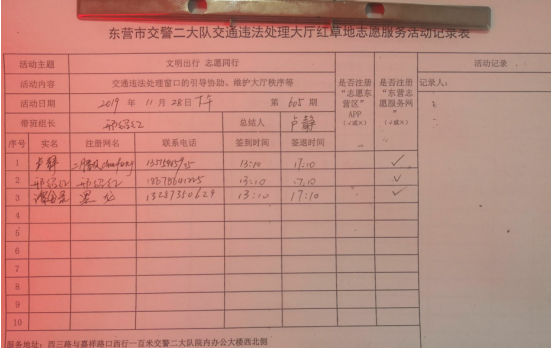 东营市交警二大队交通违法处理大厅红草地志愿服务活动记录表
活动主题 文明出行 志愿同行 活动记录
活动内容 交通违法处理窗口的引导协助、维护大厅秩序等 是否注册“志愿东营区”APP（√或×） 是否注册“东营志愿服务网”（√或×） 记录人：
活动日期 2019 年 11 月 28 日 下午 第 605 期
带班组长 总结人 卢静
序号 实名 注册网名 联系电话 签到时间 签退时间
1 卢静 13:10 17:10 ✓
2 13:10 17:10 ✓
3 13287350629 13:10 17:10 ✓
4
5
6
7
8
9
10
服务地址：西三路与嘉祥路口西行一百米交警二大队院内办公大楼西北侧